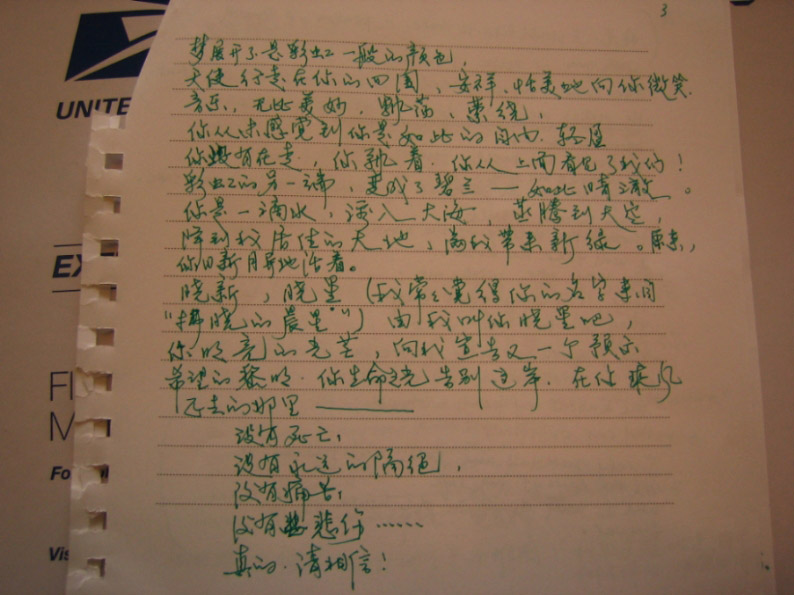 3
梦展开了是彩虹一般的颜色,
天使行走在你的四周、安详、恬美地向你微笑.
音乐、无比美妙、飘荡、萦绕,
你从未感觉到你是如此的自由、轻盈
你没有在走,你飘着.你从上面看见了我们!
彩虹的另一端,变成了碧兰——如此清澈。
你是一滴水,流入大海,蒸腾到天空,
降到我居住的大地,为我带来新绿。原来,
你日新月异地活着。
晓新,晓星(我常常觉得你的名字来自
"拂晓的晨星"!)由我叫你晓星吧,
你明亮的光芒,向我宣告又一个预示
希望的黎明.你生命之光告别这岸.在你乘风
归去的那里————
没有死亡,
没有永远的隔绝,
没有痛苦,
没有悲伤……
真的.请相信!
UNITE
EX
F
M
Fo
Vis